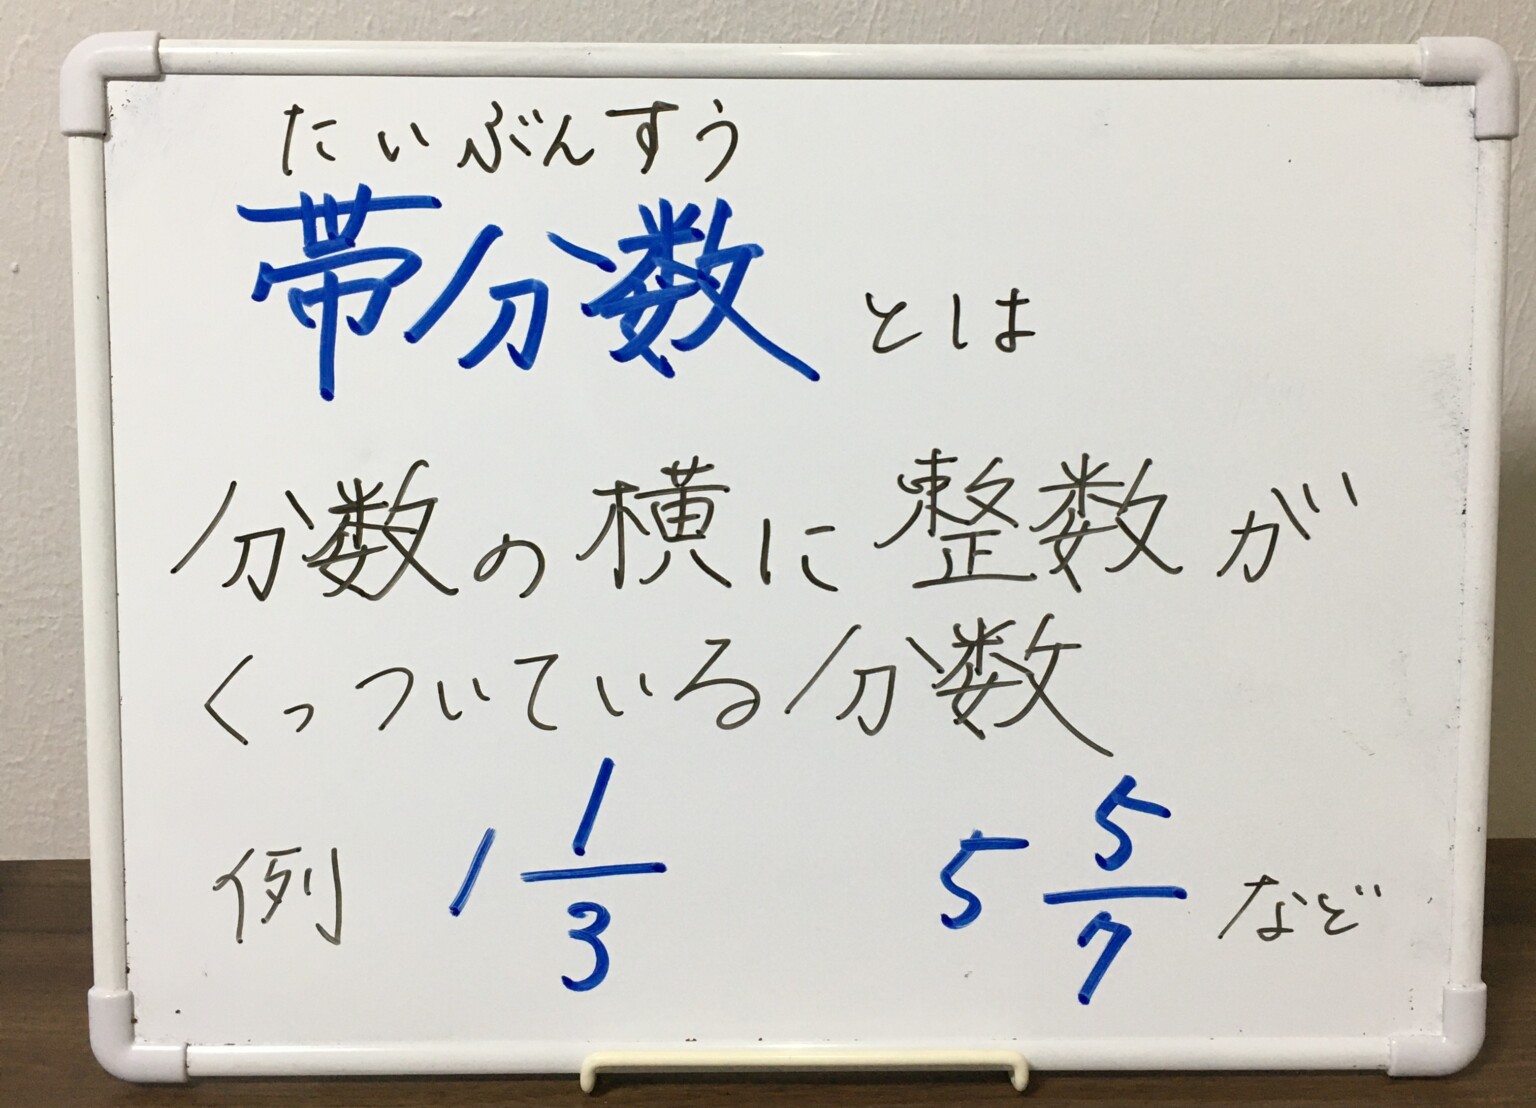 たいぶんすう
帯分数とは
分数の横に整数が
くっついている分数
例 1 1/3 5 5/7 など